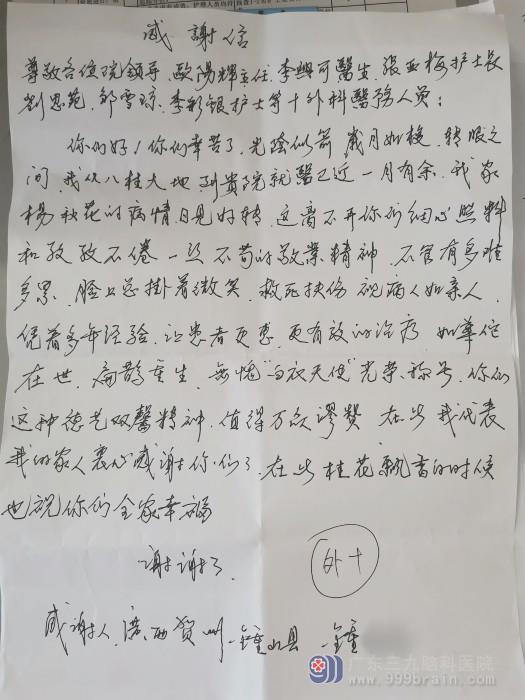 感謝信
尊敬各位院领导、歐陽輝主任、李興可醫生、張亚梅护士長
劉思苑、邹雪琼、李彩银护士等十外科醫務人员:
你们好!你们辛苦了,光陰似箭 歲月如梭、转眼之
间 我从八桂大地到貴院就醫已近一月有余、我家
杨秋花的病情日见好转、这离不开你们细心照料
和孜孜不倦 一丝不苟的敬業精神、不管有多难
多累、脸上总掛着微笑、救死扶伤 视病人如亲人、
凭着多年经验、让患者更惠、更有效的治疗、如華佗
在世、扁鹊重生、无愧"白衣天使"光荣称号、你们
这种德艺双馨精神、值得万众謬贊 在此我代表
我的家人衷心感谢你们了、在此桂花飄香的时候
也祝你们全家幸福
谢谢了.
外十
感谢人、廣西贺州鍾山县 鍾
广东三九脑科医院
www.999brain.com